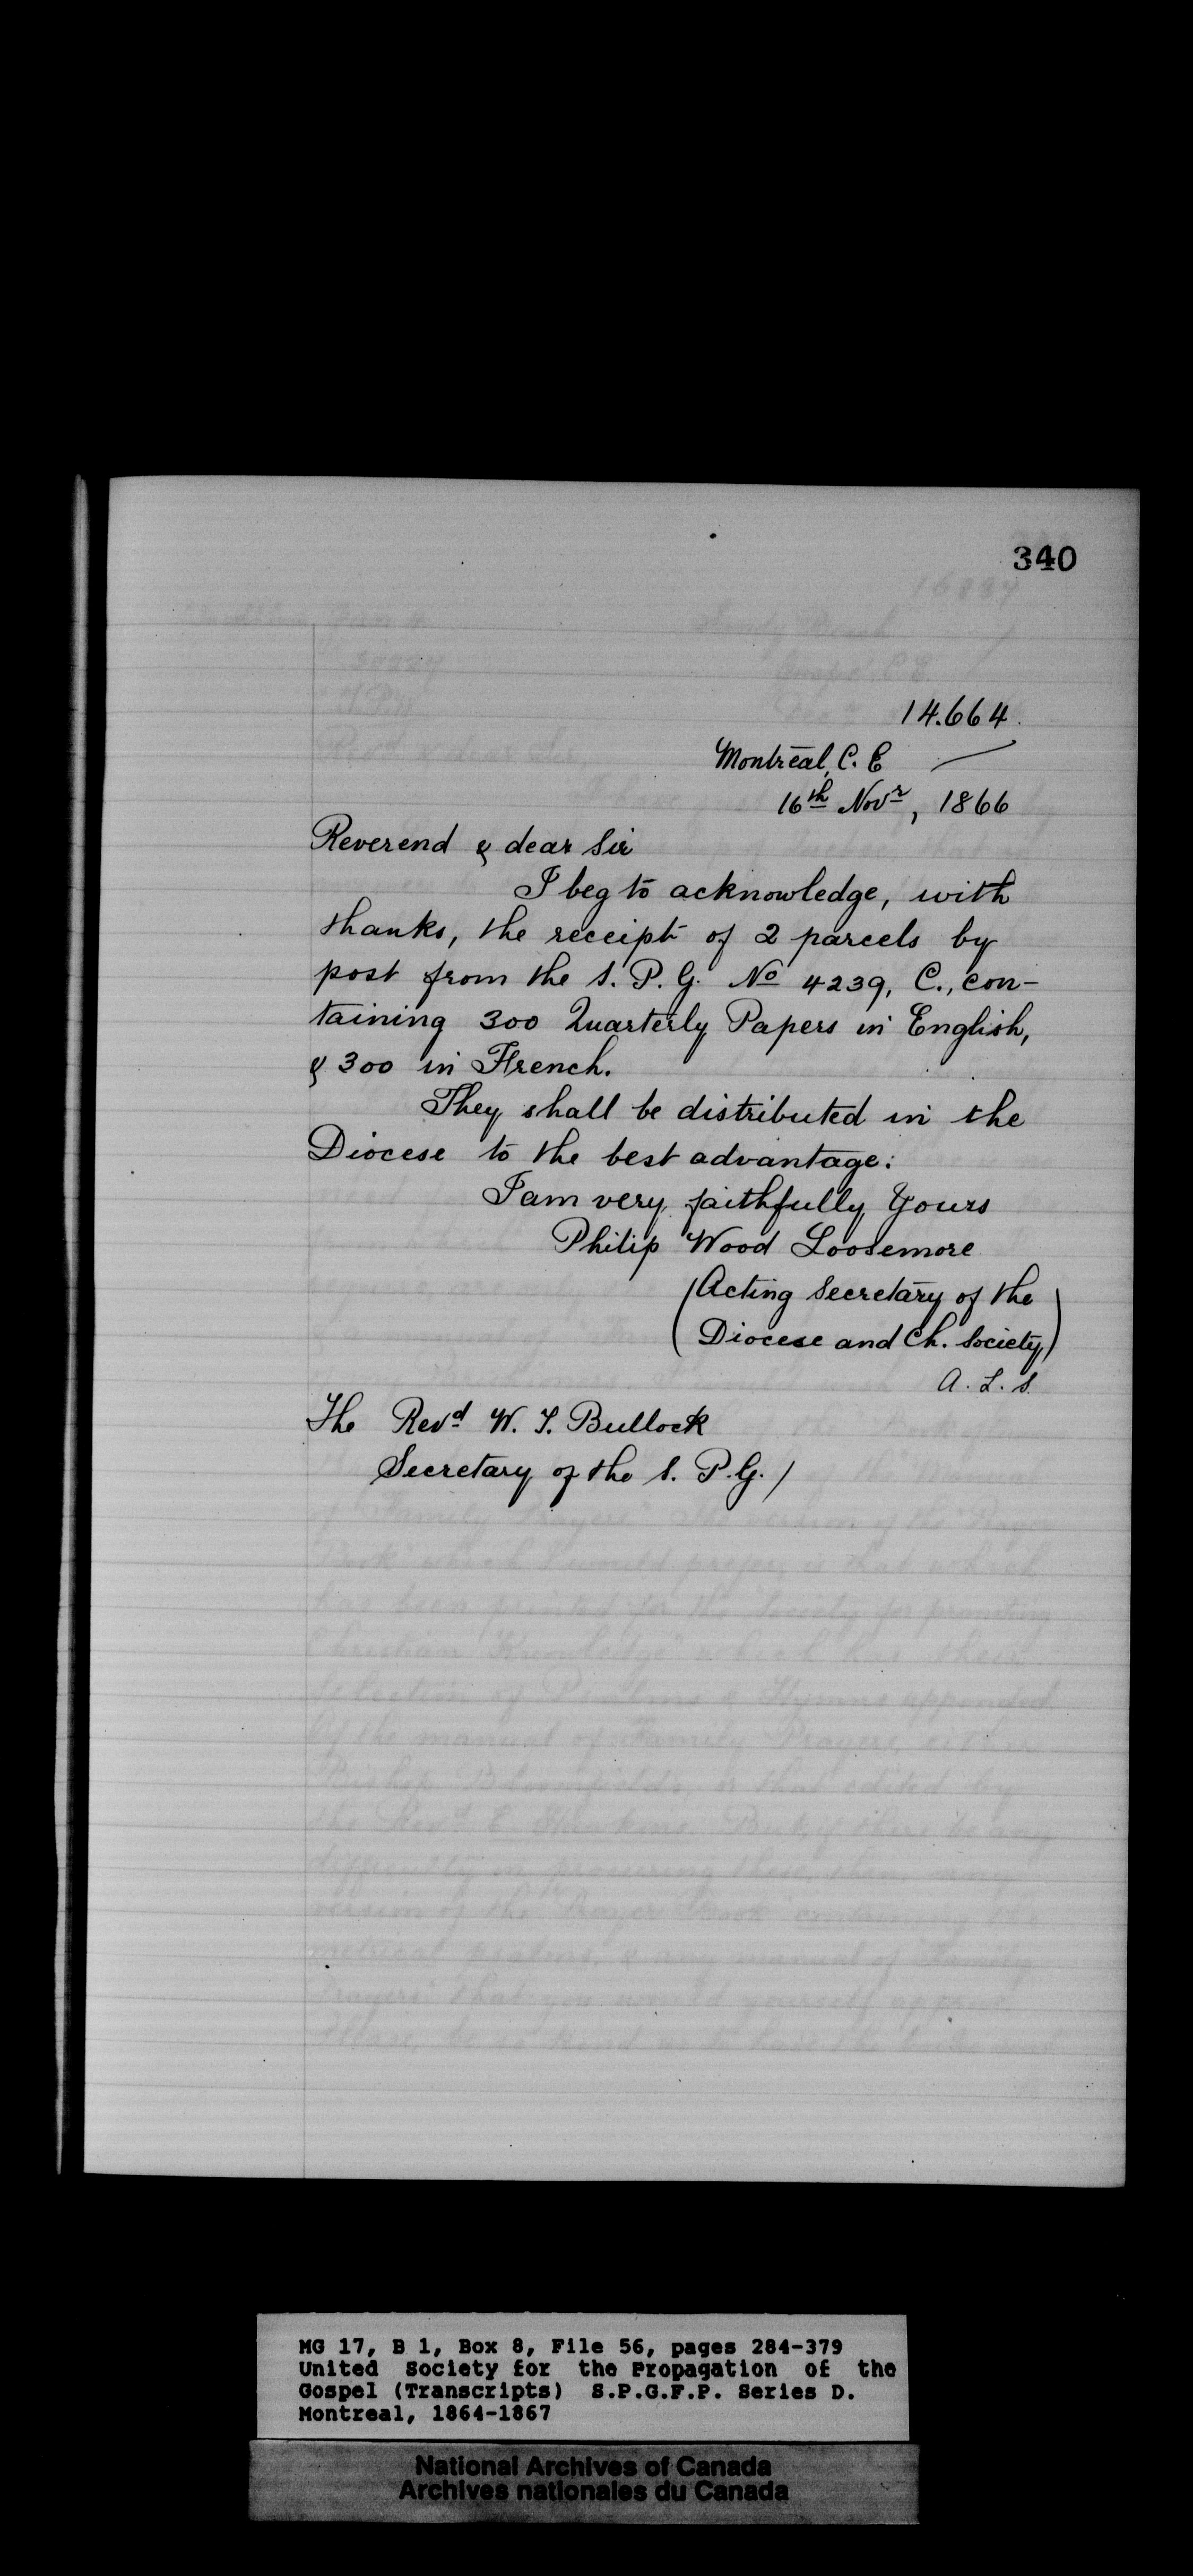 340
14.664
Montreal, C. E
16th Novr, 1866
Reverend & dear Sir
I beg to acknowledge, with
thanks, the receipt of 2 parcels by
post from the S. P. G. No 4239, C., con-
taining 300 Quarterly Papers in English,
& 300 in French.
They shall be distributed in the
Diocese to the best advantage:
I am very faithfully Yours
Philip Wood Loosemore
(Acting Secretary of the
Diocese and Ch. Society)
A. L. S.
The Revd W. T. Bullock
Secretary of the S. P. G. /
MG 17, B 1, Box 8, File 56, pages 284-379
United Society for the Propagation of the
Gospel (Transcripts) S.P.G.F.P. Series D.
Montreal, 1864-1867
National Archives of Canada
Archives nationales du Canada